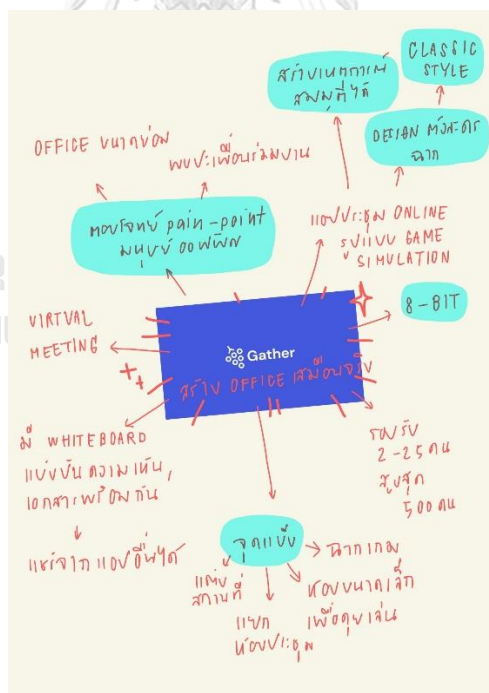 CLASSIC
STYLE
สร้างเหตุการณ์
สมมุติได้
DESIGN ตัวละคร
ฉาก
OFFICE ขนาดย่อม
พบปะเพื่อนร่วมงาน
ตอบโจทย์ pain-point
มนุษย์ออฟฟิศ
แอปประชุม ONLINE
รูปแบบ GAME
SIMULATION
8-BIT
VIRTUAL
MEETING
Gather
สร้าง OFFICE เสมือนจริง
มี WHITEBOARD
แบ่งปันความเห็น,
เอกสารพร้อมกัน
แชร์จากแอปอื่นได้
รองรับ
2-25 คน
สูงสุด
500 คน
จุดแข็ง
ฉากเกม
แต่ง
สถานที่
แยก
ห้องประชุม
ห้องขนาดเล็ก
เพื่อคุยเล่น